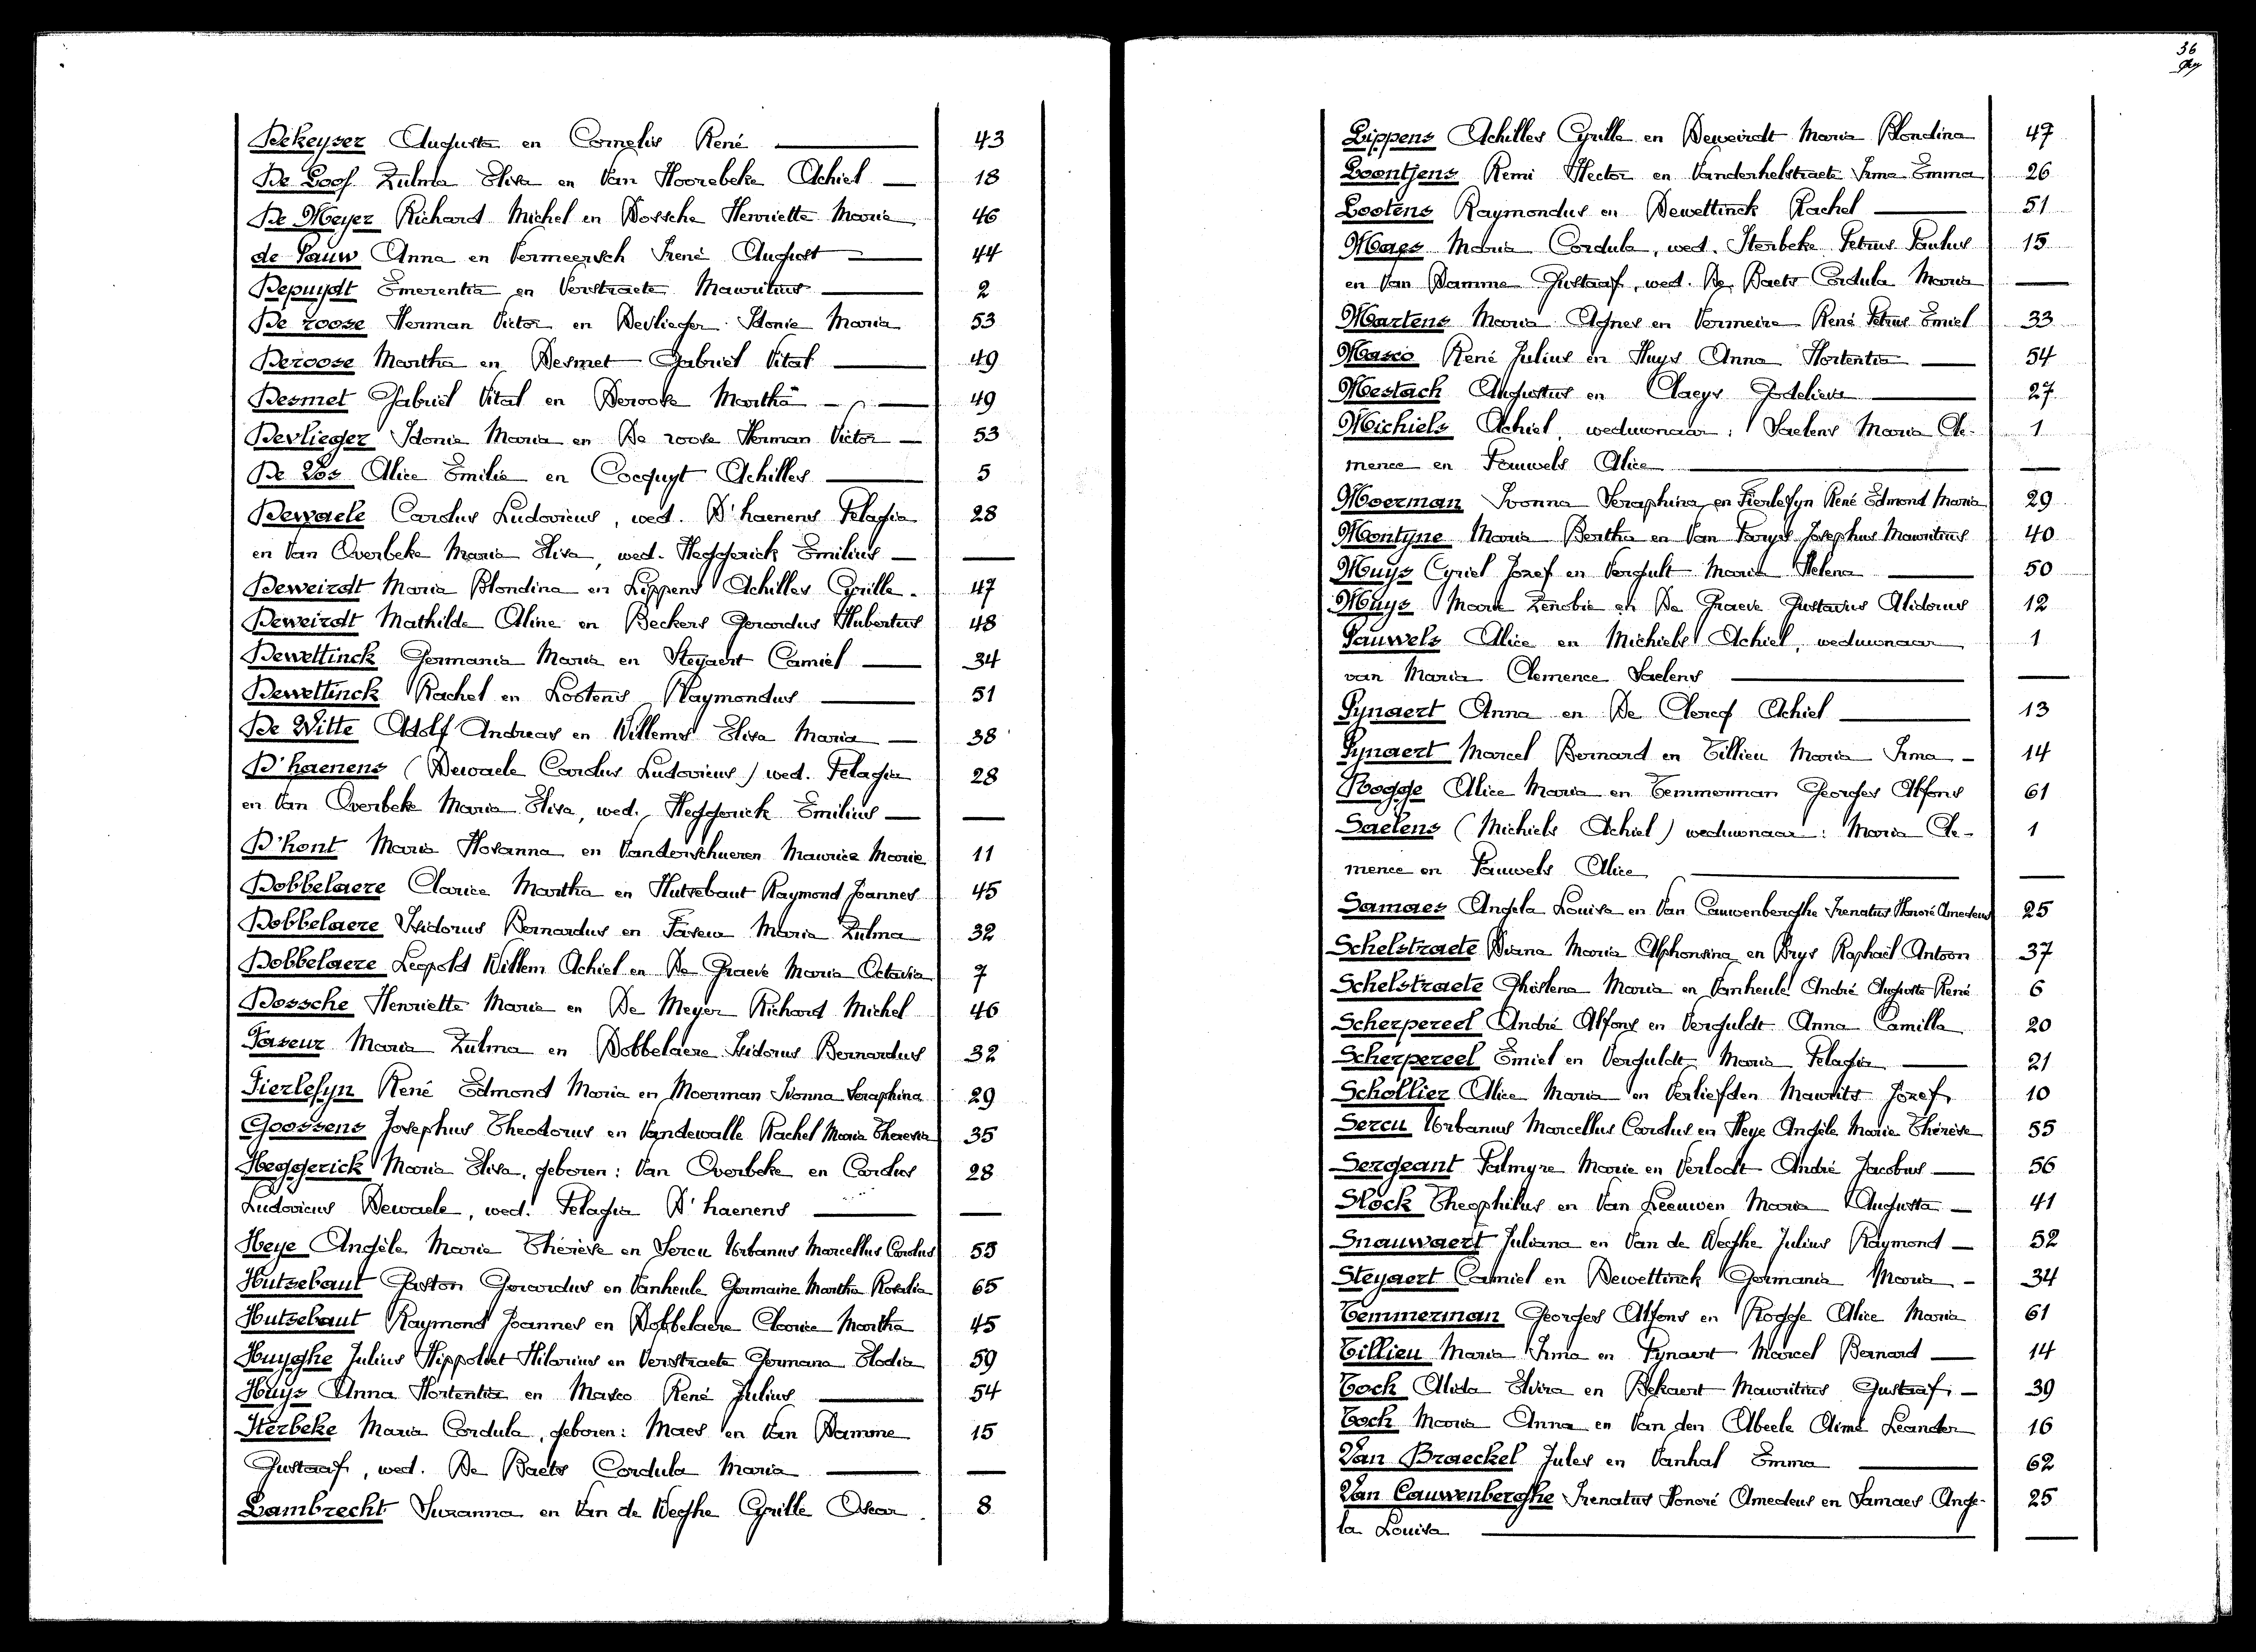 Dekeyser Augusta en Cornelis René 43
De Loof Zulma Elisa en Van Hoorebeke Achiel 18
De Meyer Richard Michel en Dossche Henriette Marie 46
de Pauw Anna en Vermeersch Irené August 44
Depuydt Emerentia en Verstraete Mauritius 2
De roose Herman Victor en Devlieger Idonie Maria 53
Deroose Martha en Desmet Gabriel Vital 49
Desmet Gabriel Vital en Deroose Martha 49
Devlieger Idonie Maria en De roose Herman Victor 53
De Vos Alice Emilie en Cocquyt Achilles 5
Dewaele Carolus Ludovicus, wed. D'haenens Pelagia 28
en Van Overbeke Maria Elisa, wed. Heggerick Emilius
Deweirdt Maria Blondina en Lippens Achilles Cyrille. 47
Deweirdt Mathilde Aline en Beckers Gerardus Hubertus 48
Dewettinck Germania Maria en Steyaert Camiel 34
Dewettinck Rachel en Lootens Raymondus 51
De Witte Adolf Andreas en Willems Elisa Maria 38
D'haenens (Dewaele Carolus Ludovicus) wed. Pelagia 28
en Van Overbeke Maria Elisa, wed. Heggerick Emilius
D'hont Maria Hosanna en Vanderschueren Maurice Marie 11
Dobbelaere Clarice Martha en Hutsebaut Raymond Joannes 45
Dobbelaere Isidorus Bernardus en Faseur Maria Zulma 32
Dobbelaere Leopold Willem Achiel en De Graeve Maria Octavia 7
Dossche Henriette Marie en De Meyer Richard Michel 46
Faseur Maria Zulma en Dobbelaere Isidorus Bernardus 32
Fierlefyn René Edmond Maria en Moerman Ivonna Seraphina 29
Goossens Josephus Theodorus en Vandewalle Rachel Maria Theresia 35
Heggerick Maria Elisa, geboren: Van Overbeke en Carolus 28
Ludovicus Dewaele, wed. Pelagia D'haenens
Heye Angèle Marie Thérèse en Sercu Urbanus Marcellus Carolus 55
Hutsebaut Gaston Gerardus en Vanheule Germaine Martha Rosalia 65
Hutsebaut Raymond Joannes en Dobbelaere Clarice Martha 45
Huyghe Julius Hippoliet Hilarius en Verstraete Germana Elodia 59
Huys Anna Hortentia en Masco René Julius 54
Iterbeke Maria Cordula, geboren: Maes en Van Damme 15
Gustaaf, wed. De Baets Cordula Maria
Lambrecht Suzanna en Van de Weghe Cyrille Oscar. 8
36
Lippens Achilles Cyrille en Deweirdt Maria Blondina 47
Loontjens Remi Hector en Vanderhelstraete Irma Emma 26
Lootens Raymondus en Dewettinck Rachel 51
Maes Maria Cordula, wed. Iterbeke Petrus Paulus 15
en Van Damme Gustaaf, wed. De Baets Cordula Maria
Martens Maria Agnes en Vermeire René Petrus Emiel 33
Masco René Julius en Huys Anna Hortentia 54
Mestach Augustus en Claeys Godelieva 27
Michiels Achiel, weduwnaar: Saelens Maria Cle- 1
mence en Pauwels Alice
Moerman Ivonna Seraphina en Fierlefyn René Edmond Maria 29
Montyne Maria Bertha en Van Parys Josephus Mauritius 40
Muys Cyriel Jozef en Vergult Maria Helena 50
Muys Marie Zenobie en De Graeve Gustavus Alidorus 12
Pauwels Alice en Michiels Achiel, weduwnaar 1
van Maria Clemence Saelens
Pynaert Anna en De Clercq Achiel 13
Pynaert Marcel Bernard en Tillieu Maria Irma 14
Rogge Alice Maria en Temmerman Georges Alfons 61
Saelens (Michiels Achiel) weduwnaar: Maria Cle- 1
mence en Pauwels Alice
Samaes Angela Louisa en Van Cauwenberghe Irenatus Honoré Amedeus 25
Schelstraete Diana Maria Alphonsina en Brys Raphaël Antoon 37
Schelstraete Ghislena Maria en Vanheule André Auguste René 6
Scherpereel André Alfons en Verguldt Anna Camilla 20
Scherpereel Emiel en Verguldt Maria Pelagia 21
Schollier Alice Maria en Verliefden Maurits Jozef 10
Sercu Urbanus Marcellus Carolus en Heye Angèle Marie Thérèse 55
Sergeant Palmyre Marie en Verlodt André Jacobus 56
Slock Theophilus en Van Leeuwen Maria Augusta 41
Snauwaert Juliana en Van de Weghe Julius Raymond 52
Steyaert Camiel en Dewettinck Germania Maria 34
Temmerman Georges Alfons en Rogge Alice Maria 61
Tillieu Maria Irma en Pynaert Marcel Bernard 14
Tock Alida Elvira en Bekaert Mauritius Gustaaf 39
Tock Maria Anna en Van den Abeele Aimé Leander 16
Van Braeckel Jules en Vanhal Emma 62
Van Cauwenberghe Irenatus Honoré Amedeus en Samaes Ange- 25
la Louisa